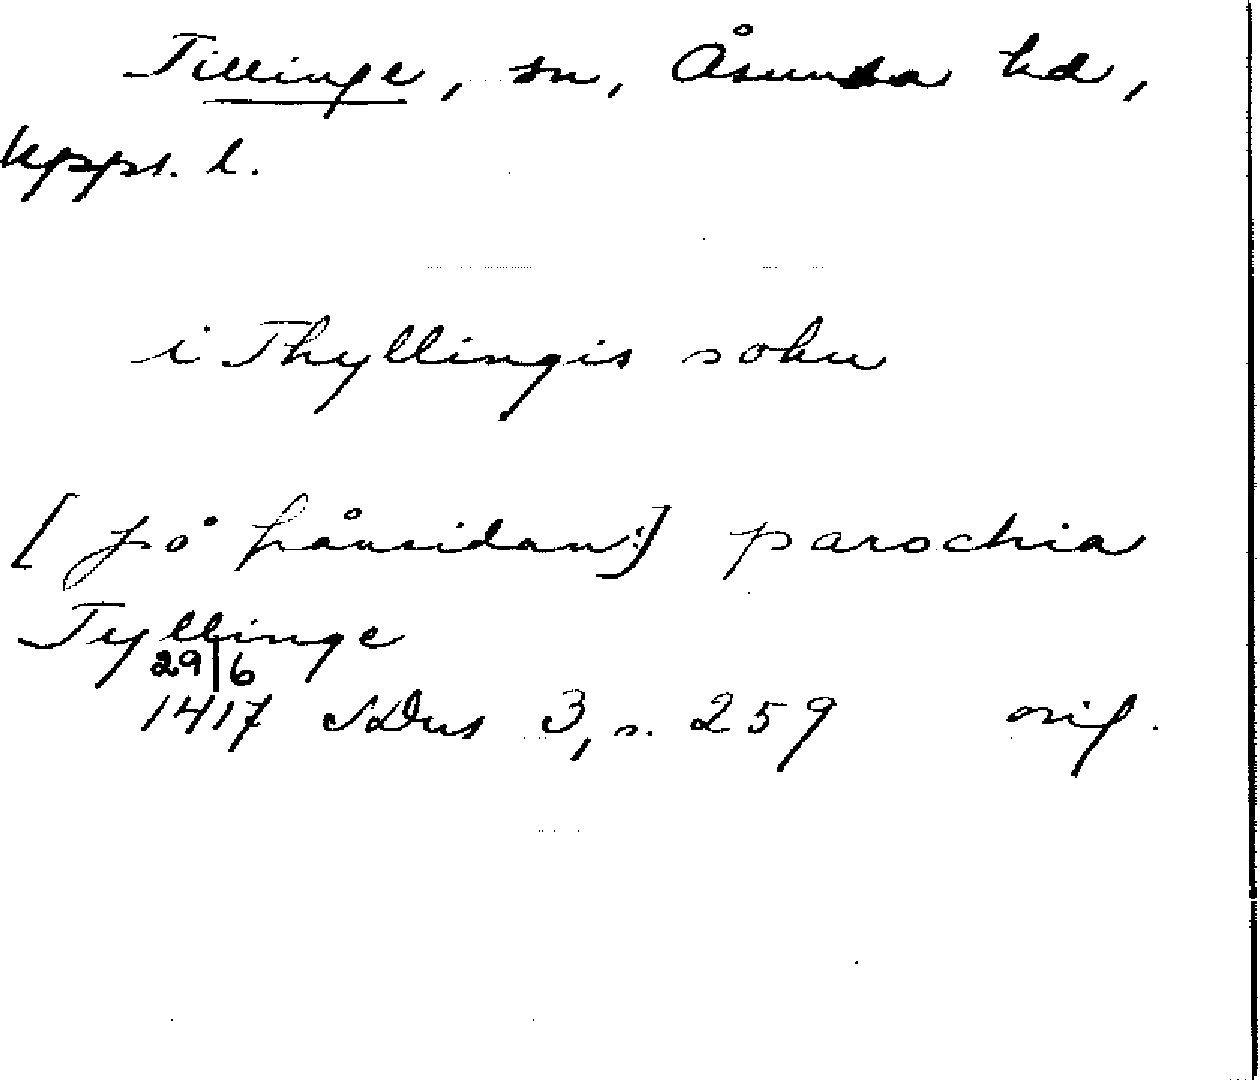 Tillinge, sn, Åsunda hd,
Uppl. l.
i Thyllingis sokn
[på frånsidan:] parochia
Tyllinge
29/6
1417 SDns 3, s. 259 orig.